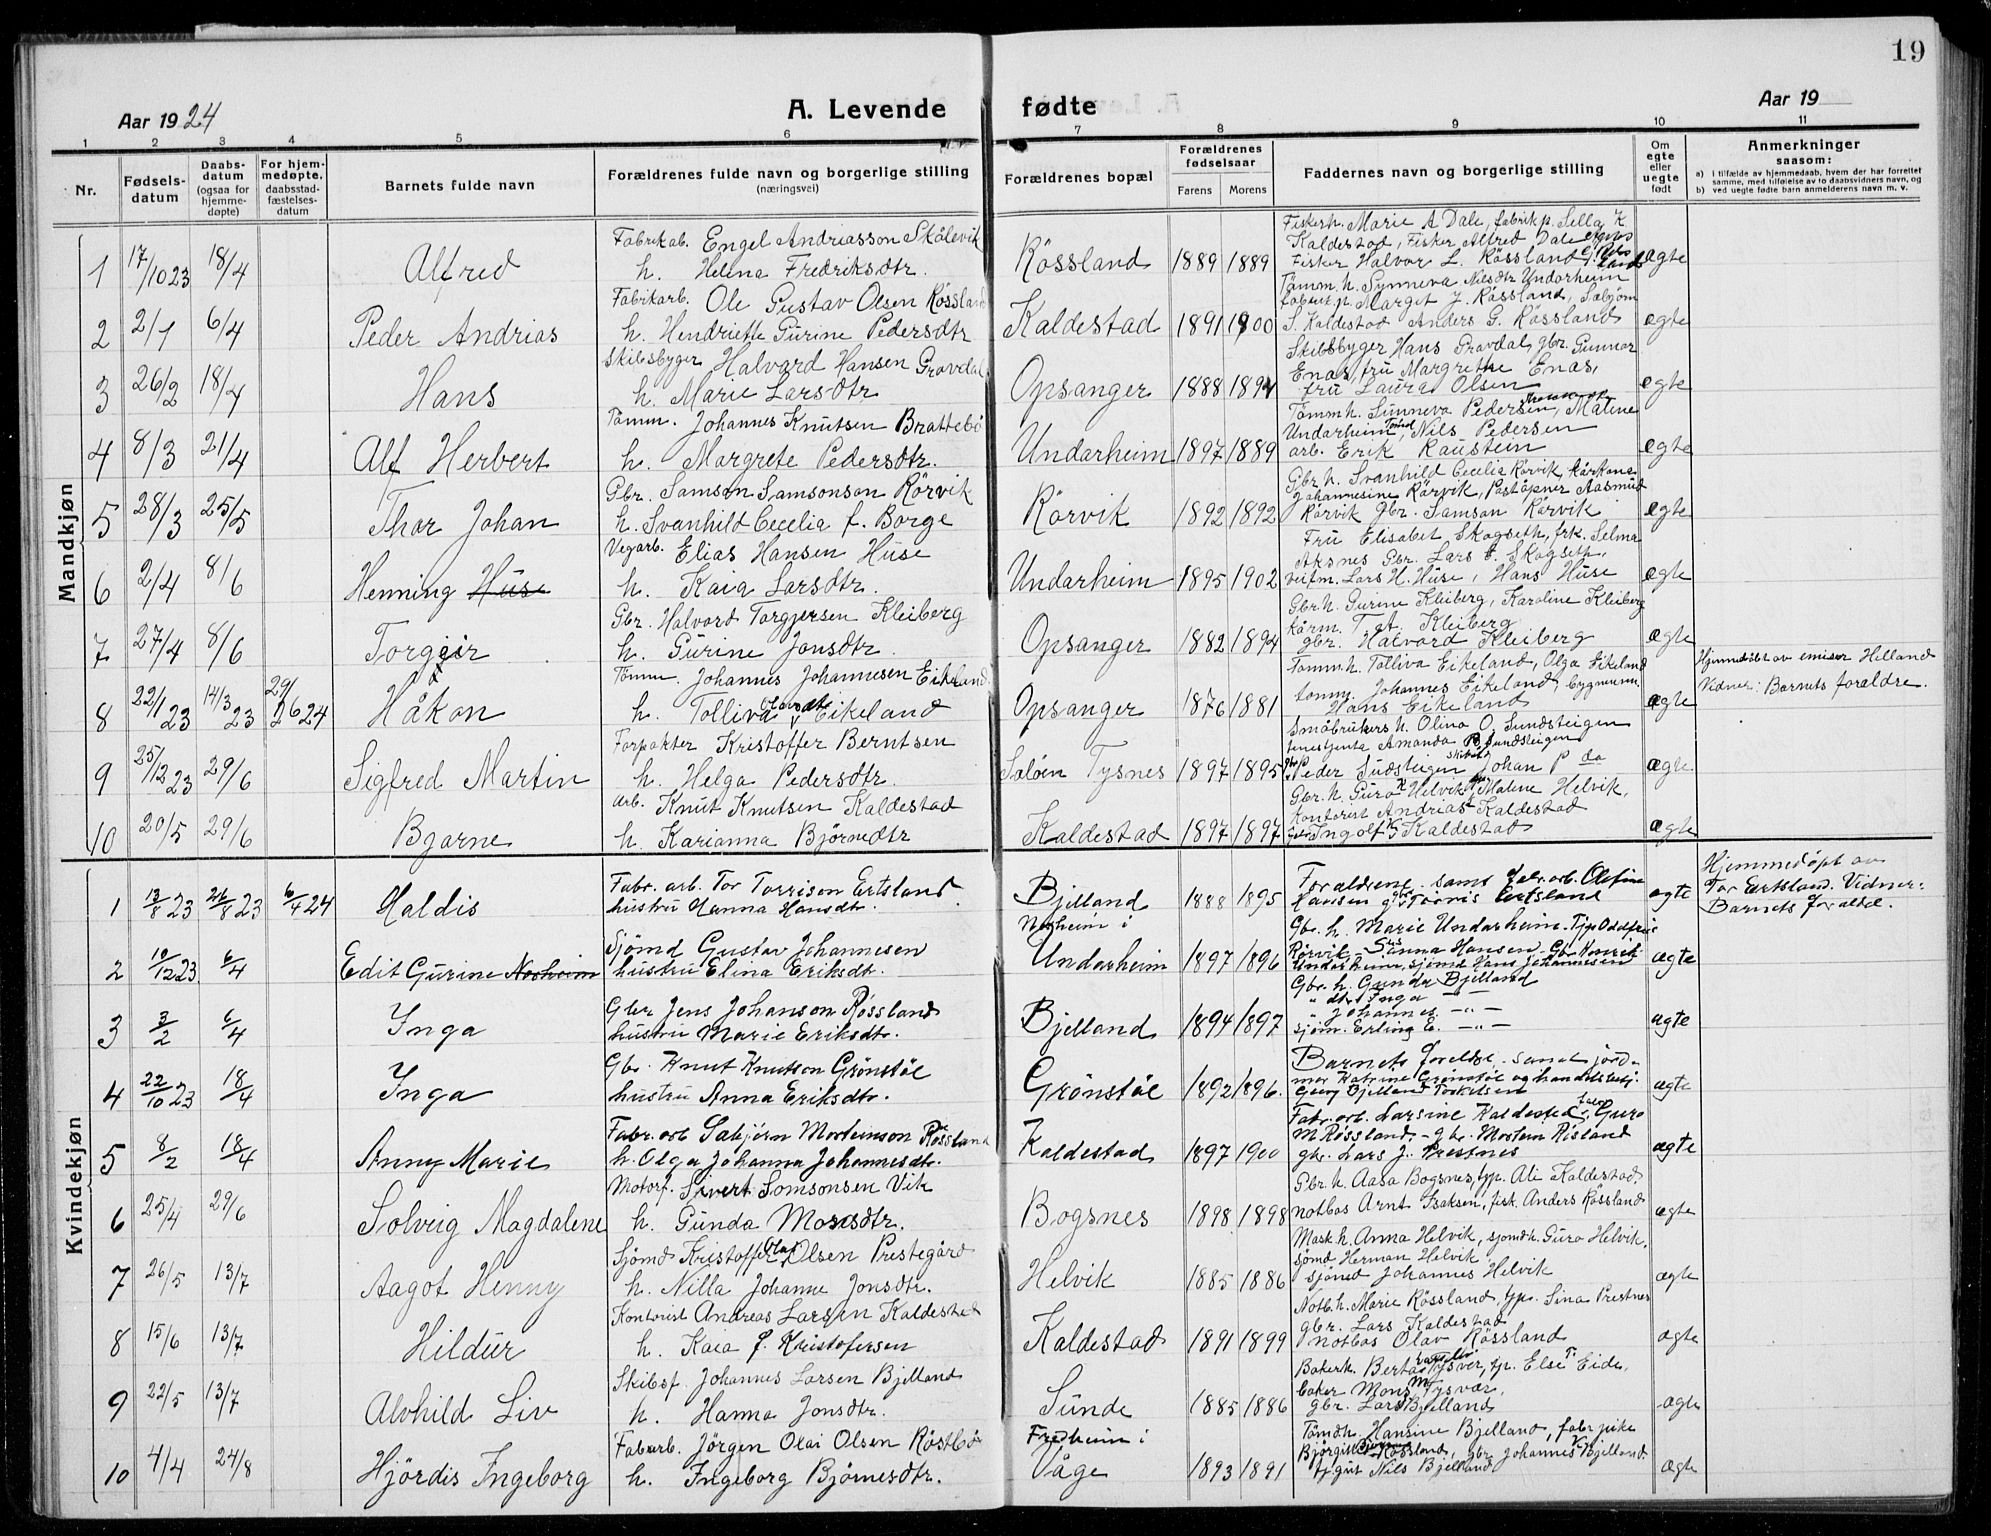 19
Aar 1924
A. Levende fødte
Aar 19
1 2 3 4 5 6 7 8 9 10 11
Nr.
Fødsels-datum
Daabs-datum (ogsaa for hjemme-døpte)
For hjem-medøpte, daabsstad-fæstelses-datum
Barnets fulde navn
Forældrenes fulde navn og borgerlige stilling (næringsvei)
Forældrenes bopæl
Forældrenes fødselsaar
Farens Morens
Faddernes navn og borgerlige stilling
Om egte eller uegte født
Anmerkninger
saasom:
a) i tilfælde av hjemmedaab, hvem der har forrettet samme, med tilføielse av to daabsvidners navn, og
b) ved uegte fødte barn anmelderens navn m. v.
Mandkjøn
1 17/10 23 18/4 Alfred
Fabrikab. Engel Andriasson Skålevik
h. Helena Fredriksdtr.
Røssland 1889 1889
Fiskerh. Marie A Dale, fabrikp. Sella K
Kaldestad, Fisker Alfred Dale
Fisker Halvor L. Røssland
ægte
2 2/1 6/4 Peder Andrias
Fabrikarb. Ole Gustav Olsen Røssland
h. Hendriette Gurine Pedersdtr
Kaldestad 1891 1900
Tømm. h. Synneva Nilsdtr Undarheim
Margit J. Røssland, Sabjørn
S. Kaldestad Anders G. Røssland
ægte
3 26/2 18/4 Hans
Skibsbyger Halvard Hansen Gravdal
h. Marie Larsdtr
Opsanger 1888 1894
Skibsbyger Hans Gravdal, gbr. Gunnar
Enæs, fru Margrethe Enæs,
fru Laura Olsen
ægte
4 8/3 21/4 Alf Herbert
Tømm. Johannes Knutsen Brattebø
h. Margrete Pedersdtr.
Undarheim 1897 1889
Tømmh. Sunneva Pedersen, Malene
Undarheim, Nils Pedersen
arb. Erik Raustein
ægte
5 28/3 25/5 Thor Johan
Gbr. Samson Samsonson Rørvik
h. Svanhild Cecelia f. Borge
Rørvik 1892 1892
Gbr. h. Svanhild Cecelia Rørvik, kårkona
Johannesine Rørvik, Postøpner Aasmud
Rørvik gbr. Samson Rørvik
ægte
6 2/4 8/6 Henning Huse
Vegarb. Elias Hansen Huse
h. Kaia Larsdtr.
Undarheim 1895 1902
Fru Elisabet Skogseth, frk. Selma
Aksnes Gbr. Lars E. Skogseth,
veifm. Lars H. Huse, Hans Huse
ægte
7 27/4 8/6 Torgeir
Gbr. Halvord Torgjersen Kleiberg
h. Gurine Jonsdtr.
Opsanger 1882 1894
Gbr. h. Gurine Kleiberg, Karoline Kleiberg
kårm. T. A. Kleiberg
gbr. Halvord Kleiberg
ægte
8 22/1 23 14/3 23 29/6 24 Håkon
Tømm. Johannes Johannesen Eikeland
h. Tolliva Olavdtr Eikeland
Opsanger 1876 1881
Tømm. h. Tolliva Eikeland, Olga Eikeland
tømm. Johannes Eikeland, bygmann.
Hans Eikeland
ægte
Hjemmedøbt av emisær Helland
Vidner: Barnets forældre.
9 25/12 23 29/6 Sigfred Martin
Forpakter Kristoffer Berntsen
h. Helga Pedersdtr.
Saløen Tysnes 1897 1895
Småbrukers h. Olina O. Sundsteigen
tenestjenta Amanda B. Sundsteigen
Peder Sudsteigen Johan P do
ægte.
10 20/5 29/6 Bjarne
arb. Knut Knutsen Kaldestad
h. Karianna Bjørnedtr
Kaldestad 1897 1897
Gbr. h. Guro Helvik, Malene Helvik,
Kontorist Andrias Kaldestad
Ingolf Kaldestad
ægte
Kvindekjøn
1 13/8 23 26/8 23 6/4 24 Haldis
Fabr. arb. Tor Torrison Ertsland
hustru Hanna Hansdtr.
Bjelland 1888 1895
Forældrene samt fabr. arb. Olefine
Hansen gbr Torris Ertsland
ægte
Hjemmedøpt av
Tor Ertsland. Vidner:
Barnets foreldre.
2 10/12 23. 6/4 Edit Gurine Nesheim
Sjømd Gustav Johannesen
hustru Elina Eriksdtr.
Nesheim i
Undarheim 1897 1896
Gbr. h. Marie Undarheim. Tjp Oddfrie
Rørvik Susanna Hansen. Gbr Henrik
Undarheim, sjømd Hans Johannesen
ægte
3 3/2 6/4 Inga
Gbr Jens Johanson Røssland
hustru Marie Eriksdtr.
Bjelland 1894 1897
Gbr. h. Gunda Bjelland
" dtr Inga — " —
" Johannes — " —
sjøm. Erling E. — " —
ægte
4 22/10 23 18/4 Inga
Gbr. Knut Knutson Grønstøl
hustru Anna Eriksdtr.
Grønstøl 1892 1896.
Barnets foreldre. samt jord-
mor Katrine Grønstøl og handelsbetj.
Georg Bjelland Torkelsen
ægte
5 8/2 18/4 Anny Marie
Fabr. arb Sabjørn Morteinson Røssland
h. Olga Johanna Johannesdtr.
Kaldestad 1897 1900
Fabr. arb. Larsine Kaldestad, Guro
M Røssland. - gbr. Mortein Risland
gbr. Lars J. Prestnes
ægte
6 25/4 29/6 Solveig Magdalene
Motorf. Sivert Somsonsen Vik
h. Gunda Mosesdtr.
Bogsnes 1898 1898
Gbr. h. Aasa Bogsnes, tjp. Ali Kaldestad,
notbas Arnt Isaksen, fisk. Anders Røssland
ægte
7 26/5 13/7 Aagot Henny
Sjømd Kristoffer Olai Olsen Prestegård
h. Nilla Johanne Jonsdtr.
Helvik 1885 1886
Mask h. Anna Helvik, sjomdh. Guro Helvik,
sjømd Herman Helvik
sjømd Johannes Helvik
ægte
8 15/6 13/7 Hildur
Kontorist Andreas Larsen Kaldestad
h. Kaia f. Kristofersen
Kaldestad 1891 1899
Notb. h. Marie Røssland, tjp. Sina Prestnes
gbr. Lars Kaldestad
notbas Olav Røssland
ægte
9 22/5 13/7 Alvhild Liv
Skibsf. Johannes Larsen Bjelland
h. Hanna Jonsdtr.
Sunde 1885 1886
Bakerh. Berta Tysver, tjp. Else Eide,
baker Mons M Tysvær,
gbr. Lars Bjelland
ægte
10 4/4 24/8 Hjördis Ingeborg
Fabarb. Jørgen Olai Olsen Røstbø
h. Ingeborg Bjørnesdtr.
Fredheim i
Våge 1893 1891
Tømdh. Hansine Bjelland, fabr pike
Røssland, gbr Johannes K Bjelland.
Nils Bjelland
ægte